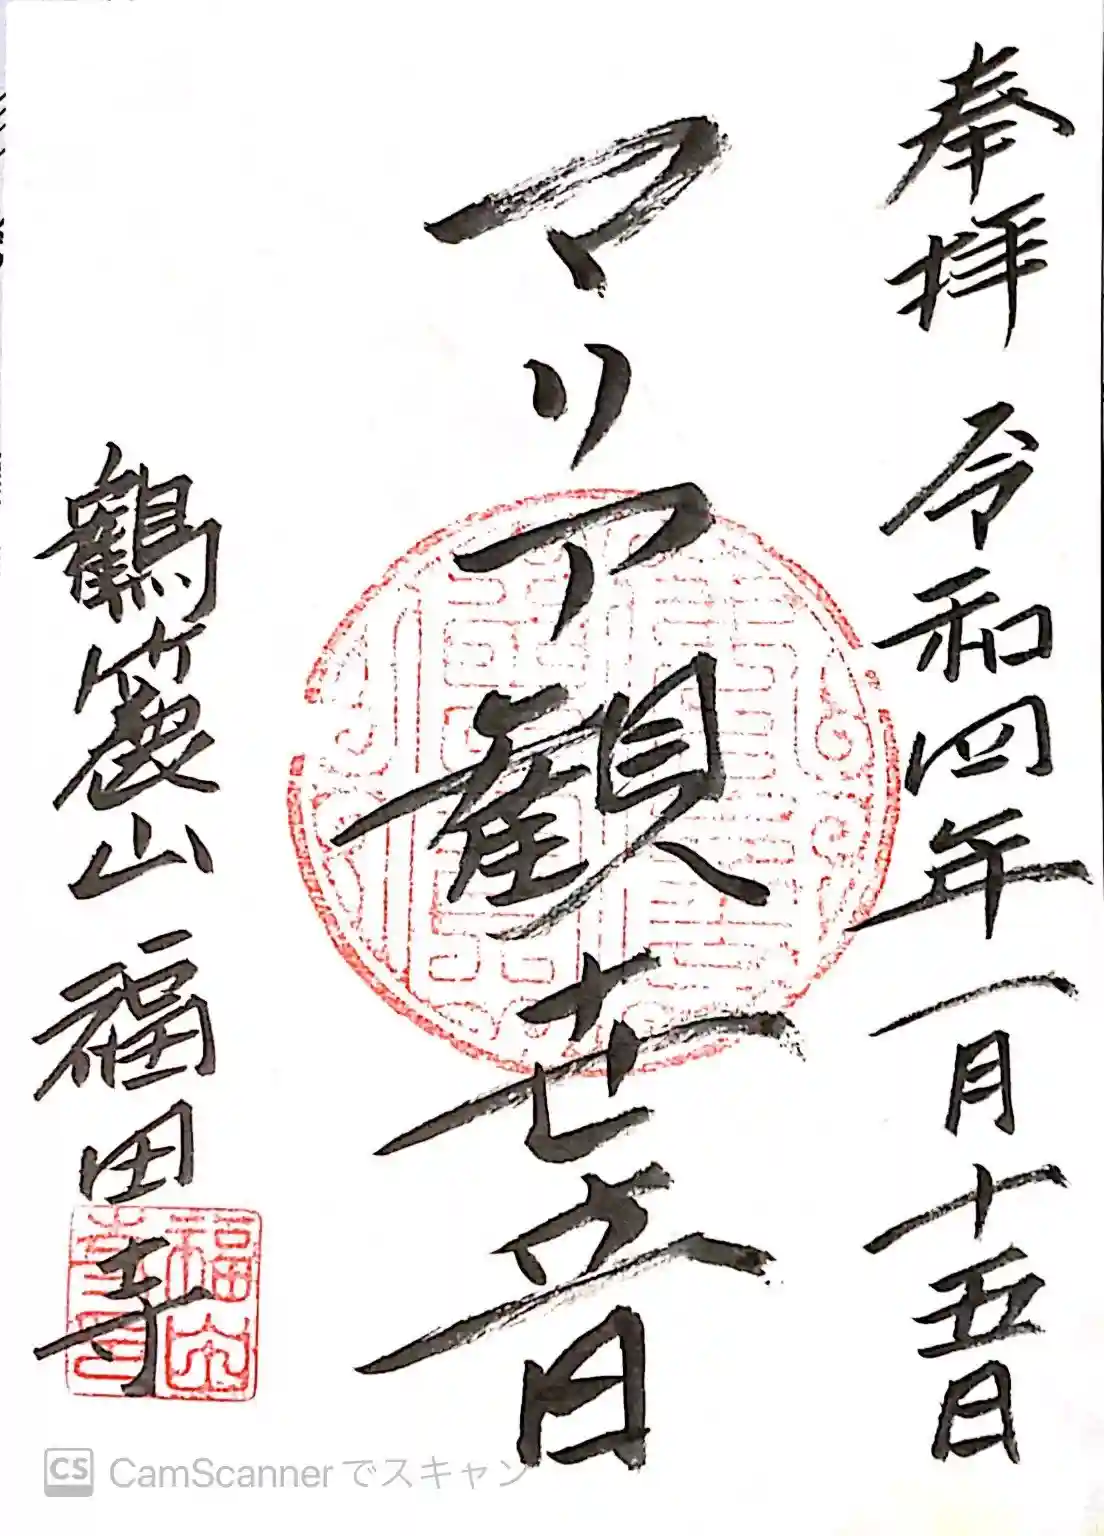 奉拝 令和四年一月十五日
マリア観世音
鶴簑山 福田寺
CS CamScannerでスキャン